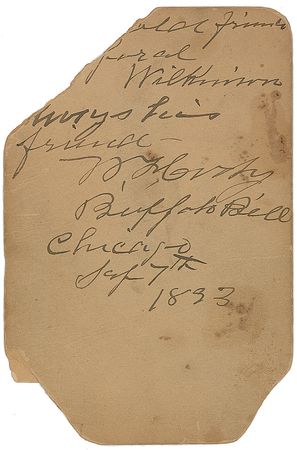 old friend
Wilkinson
always his
friend—
W F Cody
Buffalo Bill
Chicago
Sep 7th
1893